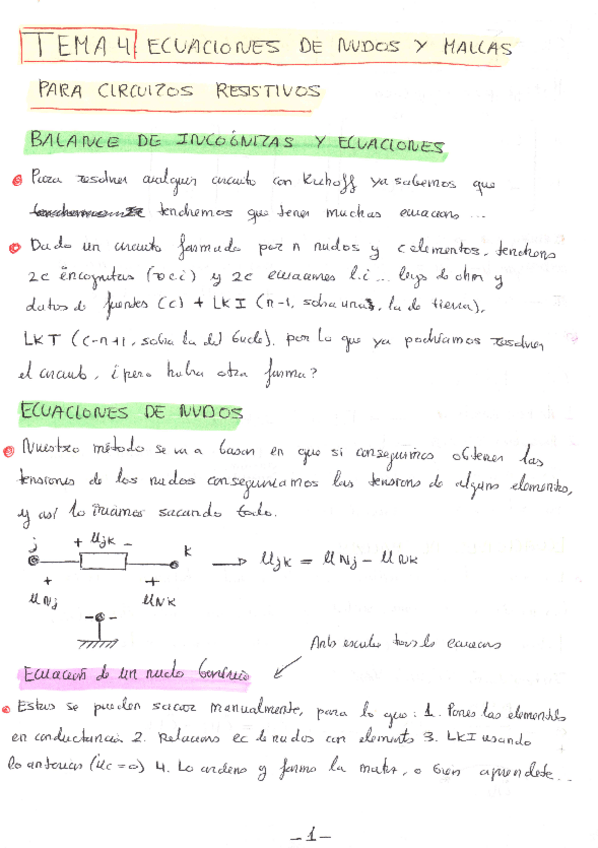 TEMA 4 ECUACIONES DE NUDOS Y MALLAS
PARA CIRCUITOS RESISTIVOS
BALANCE DE INCOGNITAS Y ECUACIONES
Para resolver cualquier circuito con Kirchoff ya sabemos que
tendremos que tener muchas ecuaciones ...
Dado un circuito formado por n nudos y c elementos, tendrems
2c incognitas (v e i) y 2c ecuaciones l.i ... leys de ohm y
datos de fuentes (c) + LKI (n-1, sobra una, la de tierra),
LKT (c-n+1, sobra la del bucle), por lo que ya podríamos resolver
el circuito, ¿pero habra otra forma?
ECUACIONES DE NUDOS
Nuestro método se va a basar en que si conseguimos obtener las
tensiones de los nudos conseguiriamos las tensiones de algunos elementos,
y así lo iriamos sacando todo.
j + Ujk - k
→ Ujk = UNj - UNk
+ +
UNj UNk
- -
Antes esculo
Ecuación de un nudo Generico
Estas se pueden sacar manualmente, para lo que: 1. Pones los elementos
en conductancia 2. Relacions ec de nudos con elements 3. LKI usando
lo anterior (ic=0) 4. Lo ordeno y formo la matriz, o bien aprendete...
-1-